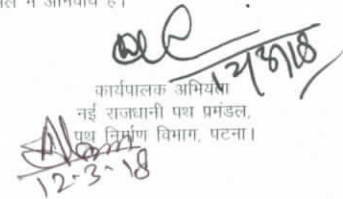 में अनिवार्य है।
कार्यपालक अभियंता
नई राजधानी पथ प्रमंडल,
पथ निर्माण विभाग, पटना।
12-3-18